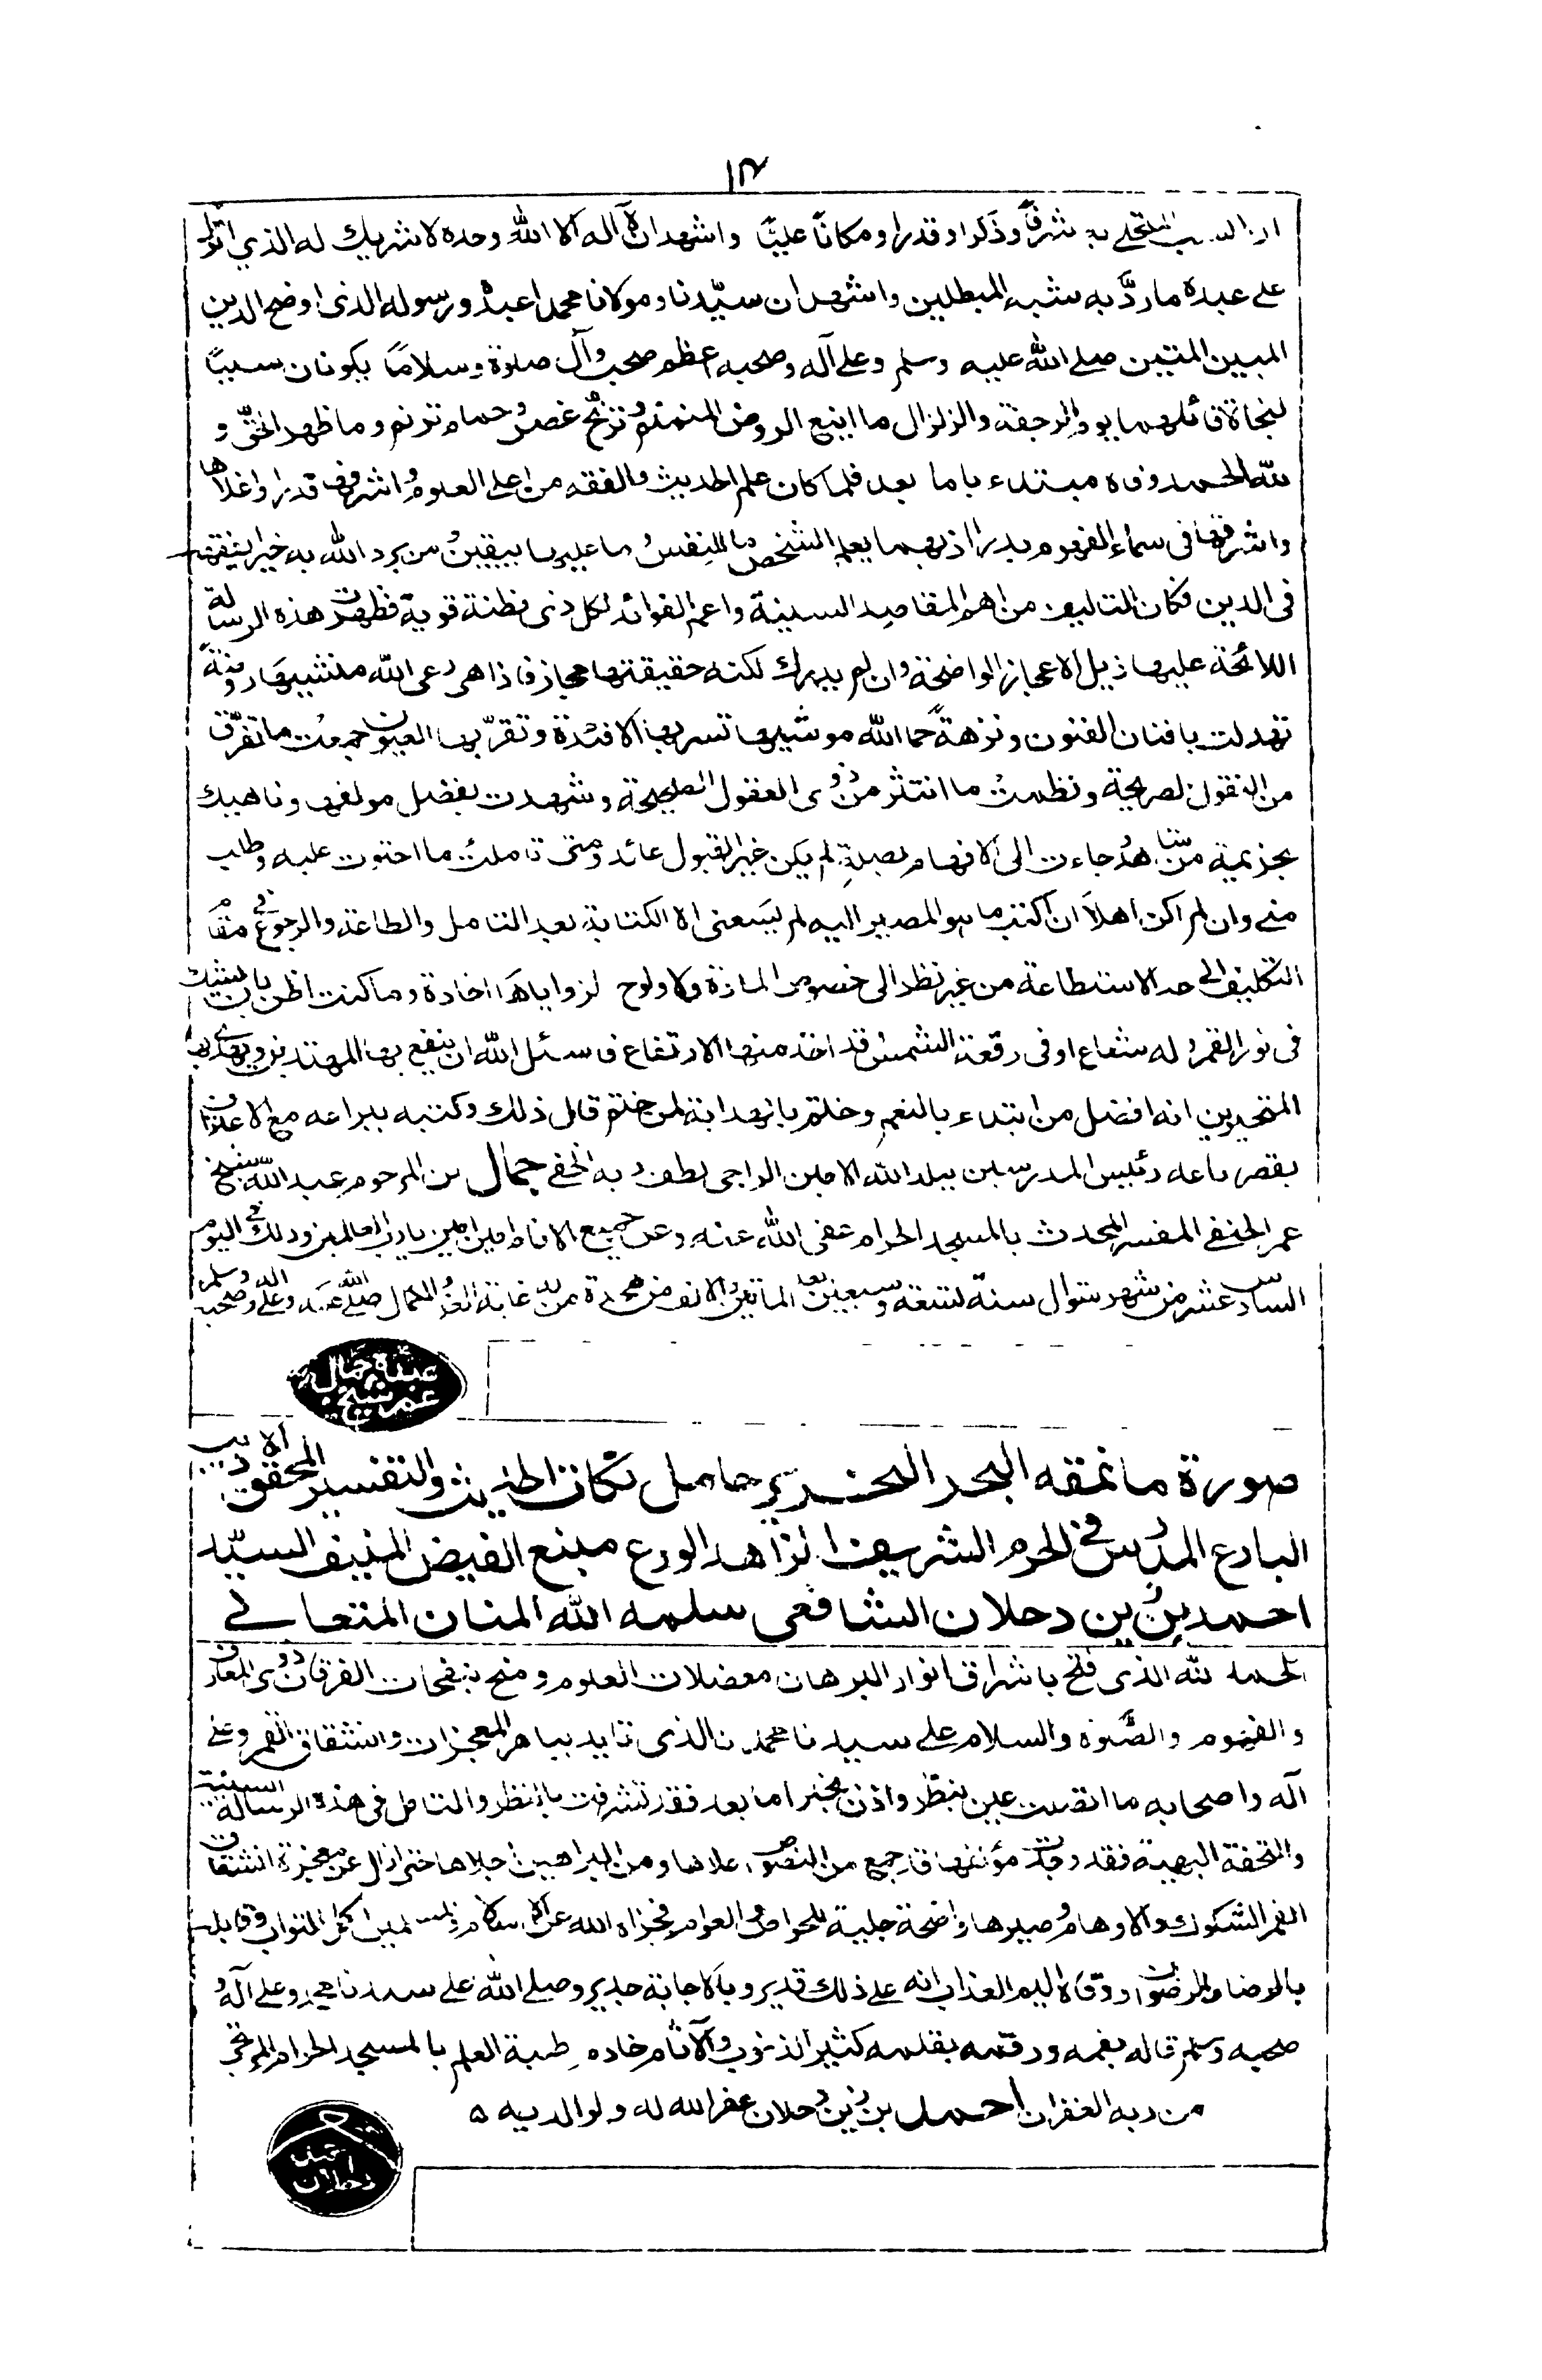 ١٣
شرفًا وذكرا وقدرا ومكانًا عليًا واشهد ان لا آله الا الله وحده لا شريك له الذي انزل
على عبده ما ردَّ به شبه المبطلين واشهد ان سيّدنا ومولانا محمدا عبده ورسوله الذى اوضح الدين
المبين المتين صلے الله عليه وسلم وعلى آله وصحبه اعظم صحب وآل صلوة وسلامًا يكونان سببًا
لنجاة قائلهما يوم الرجفة والزلزال ما اينع الروض المنمنم وترنّح غصن وحمام ترنم وما ظهر الحق و
لله الحمد مبتدء باما بعد فلما كان علم الحديث والفقه من اعلى العلوم واشرفها قدرا واغلاها
واشرقها فى سماء الفهوم بدرا اذ بهما يعلم الشخص ما للنفس وما عليها بيقين ومن يرد الله به خيرا يفقهه
فى الدين فكان التاليف من اهم المقاصد السنية واعم الفوائد لكل ذى فطنة قوية فظهرت هذه الرسالة
اللائحة عليها ذيل الاعجاز الواضحة وان لم يدرك لكنه حقيقتها مجاز فاذا هى رعى الله منشيها روضة
تهدلت بافنان الفنون ونزهة حما الله موشيها تسر بها الافئدة وتقرّ بها العيون جمعت ما تفرّق
من النقول الصريحة ونظمت ما انتثر من ذوى العقول الصحيحة وشهدت بفضل مولفها وناهيك
جاءت الى الافهام بصلةٍ لم يكن غير القبول عائد ومتى تاملت ما احتوت عليه وطلب
منى وان لم اكن اهلًا ان اكتب ما هو المصير اليه لم يسعنى الا الكتابة بعد التامل والطاعة والرجوع فى مقام
التكليف الى حد الاستطاعة من غير نظر الى خصوص المادة ولا ولوج لزواياها اخادة وما كنت اظن بان يشك
فى نور القمر وله شعاع او فى رقعة الشمس وقد اخذ منها الارتفاع فاسئل الله ان ينفع بها المهتدين ويهدى بها
المتحيرين انه افضل من ابتداء بالنعم وختم بالهداية لمن ختم قال ذلك وكتبه بيراعه مع الاعتراف
بقصر باعه رئيس المدرسين ببلد الله الامين الراجى لطف ربه الخفے جمال بن المرحوم عبد الله شيخ
عمر الحنفے المفسر المحدث بالمسجد الحرام عفى الله عنه وعن جميع الانام امين امين يا رب العالمين وذلك فى اليوم
السادس عشر من شهر شوال سنة تسعة وسبعين بعد الماتين والالف من هجرة من له غاية العز والكمال صلے الله عليه وعلى آله وصحبه وسلم
عبده جمال
عمر شيخ
صورة ما نمقه البحر النحرير حامل نكات الحديث والتفسير المحقق الاديب
البارع المدرس فى الحرم الشريف الزاهد الورع منبع الفيض المنيف السيّد
احمد بن زين دحلان الشافعى سلمه الله المنان المتعالے
الحمد لله الذى فتح باشراق انوار البرهان معضلات العلوم ومنح بنفحات الفرقان ذوى المعارف
والفهوم والصلوة والسلام على سيدنا محمد ن الذى تايد بباهر المعجزات وانشقاق القمر وعلى
آله واصحابه ما اتصلت عين بنظر واذن بخبر اما بعد فقد تشرفت بالنظر والتامل فى هذه الرسالة السنية
والتحفة البهية فقد وجدت مؤلفها قد جمع من النصوص اعلاها ومن البراهين اجلاها حتى ازال عن معجزة انشقاق
القمر الشكوك والاوهام وصيرها واضحة جلية للخواص والعوام فجزاه الله عن الاسلام والمسلمين اكمل الثواب وقابله
بالرضا والرضوان ووقاه اليم العذاب انه على ذلك قدير وبالاجابة جدير وصلے الله على سيدنا محمد وعلى آله و
صحبه وسلم قاله بفمه ورقمه بقلمه كثير الذنوب والآثام خادم طلبة العلم بالمسجد الحرام المرتجى
من ربه الغفران احمد بن زين دحلان غفر الله له ولوالديه ۵
احمد
دحلان